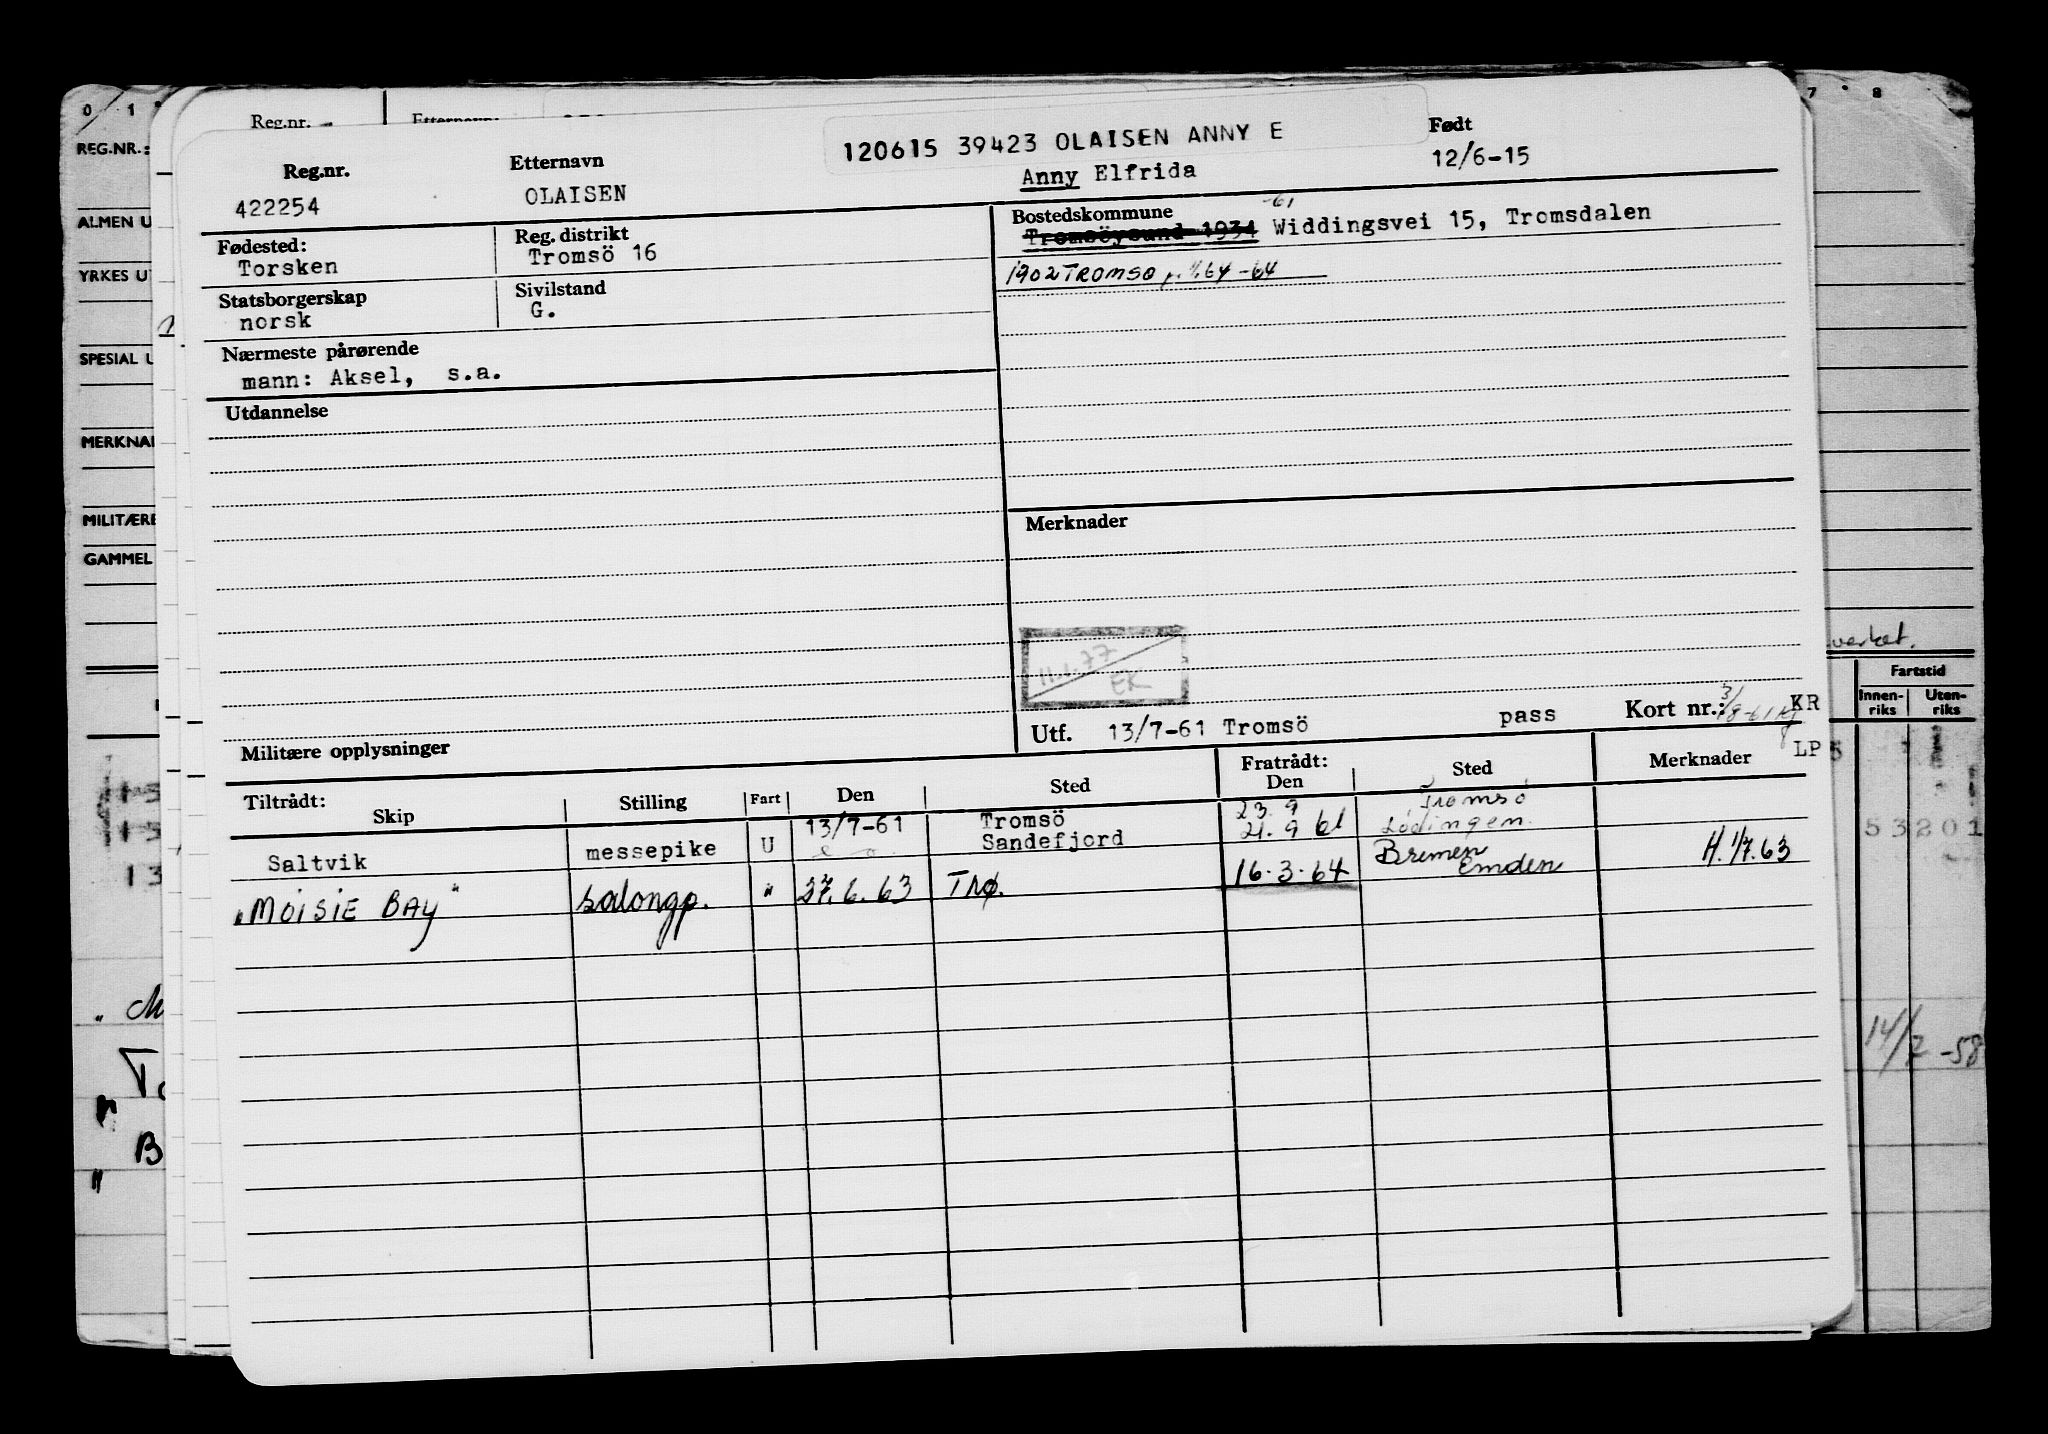 0 1 7 8
Reg.nr.
REG.NR.:
120615 39423 OLAISEN ANNY E
Reg.nr. Etternavn Født
422254 OLAISEN Anny Elfrida 12/6-15
ALMEN U
Fødested: Reg. distrikt Bostedskommune -61
Torsken Tromsö 16 Tromsöysund 1934 Widdingsvei 15, Tromsdalen
YRKES U
1902 TROMSØ -64
Statsborgerskap Sivilstand
norsk G.
Nærmeste pårørende
SPESIAL U
mann: Aksel, s.a.
Utdannelse
MERKNA
MILITÆRE
Merknader
GAMMEL
verket.
11.1.77
EK
Fartstid
Innen-
riks
Uten-
riks
Militære opplysninger
Utf. 13/7-61 Tromsö pass Kort nr.: KR
LP
Tiltrådt: Fratrådt:
Skip Stilling Fart Den Sted Den Sted Merknader
Saltvik messepike U 13/7-61 Tromsö 23.9 Tromsö
Sandefjord 21.9 61 Lödingen
"MOISIE BAY" salongp. " 27.6.63 Trø. 16.3.64 Bremen H.1/7.63
Emden
53201
14/2-58